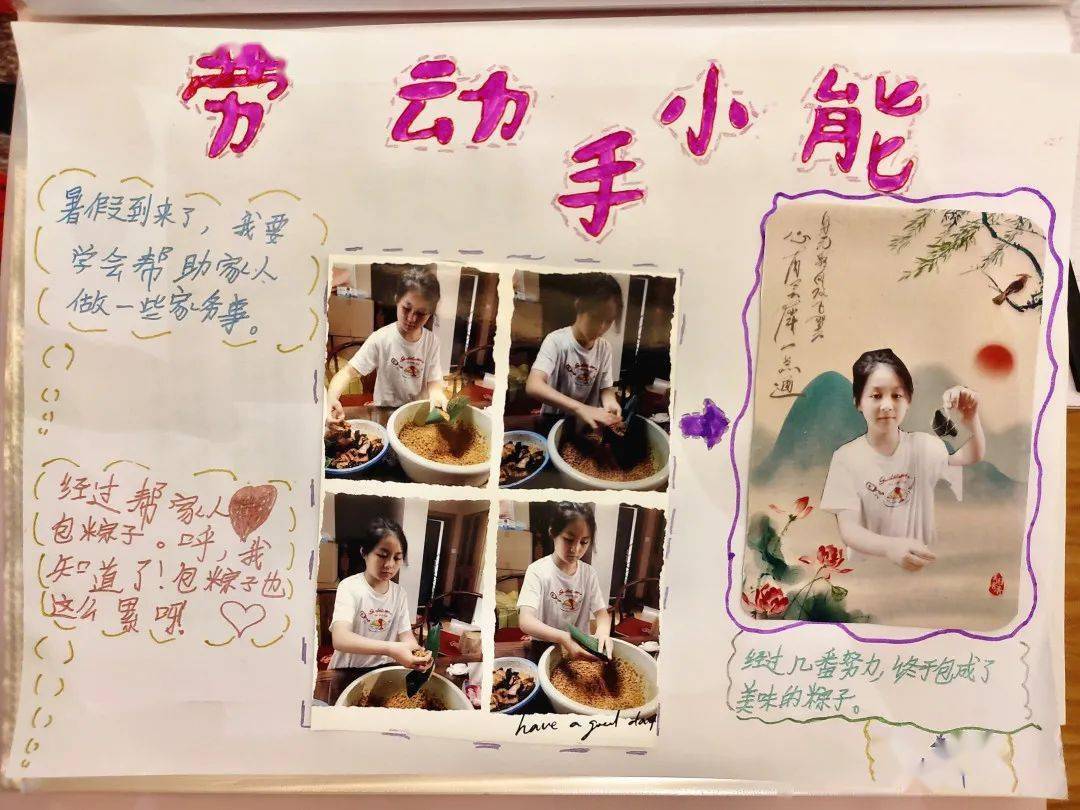 劳动小能手
暑假到来了，我要
学会帮助家人
做一些家务事。
经过帮家人
包粽子。呼，我
知道了！包粽子也
这么累呀！
have a good day
身无彩凤双飞翼
心有灵犀一点通
经过几番努力，终于包成了
美味的粽子。